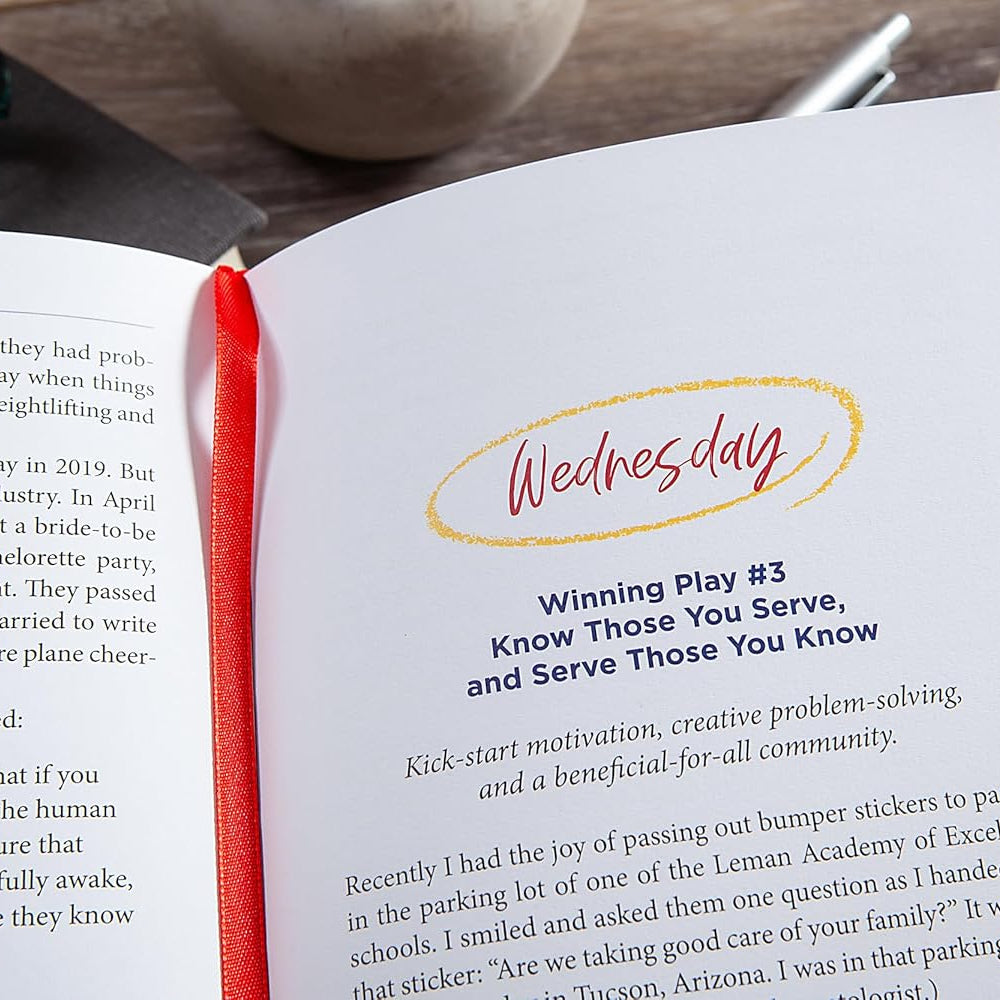 they had prob-
ay when things
eightlifting and
ay in 2019. But
lustry. In April
t a bride-to-be
helorette party,
t. They passed
arried to write
re plane cheer-
ed:
hat if you
he human
ure that
fully awake,
e they know
Wednesday
Winning Play #3
Know Those You Serve,
and Serve Those You Know
Kick-start motivation, creative problem-solving,
and a beneficial-for-all community.
Recently I had the joy of passing out bumper stickers to pa
in the parking lot of one of the Leman Academy of Excel
schools. I smiled and asked them one question as I hande
that sticker: “Are we taking good care of your family?” It w
in Tucson, Arizona. I was in that parking
tologist.)